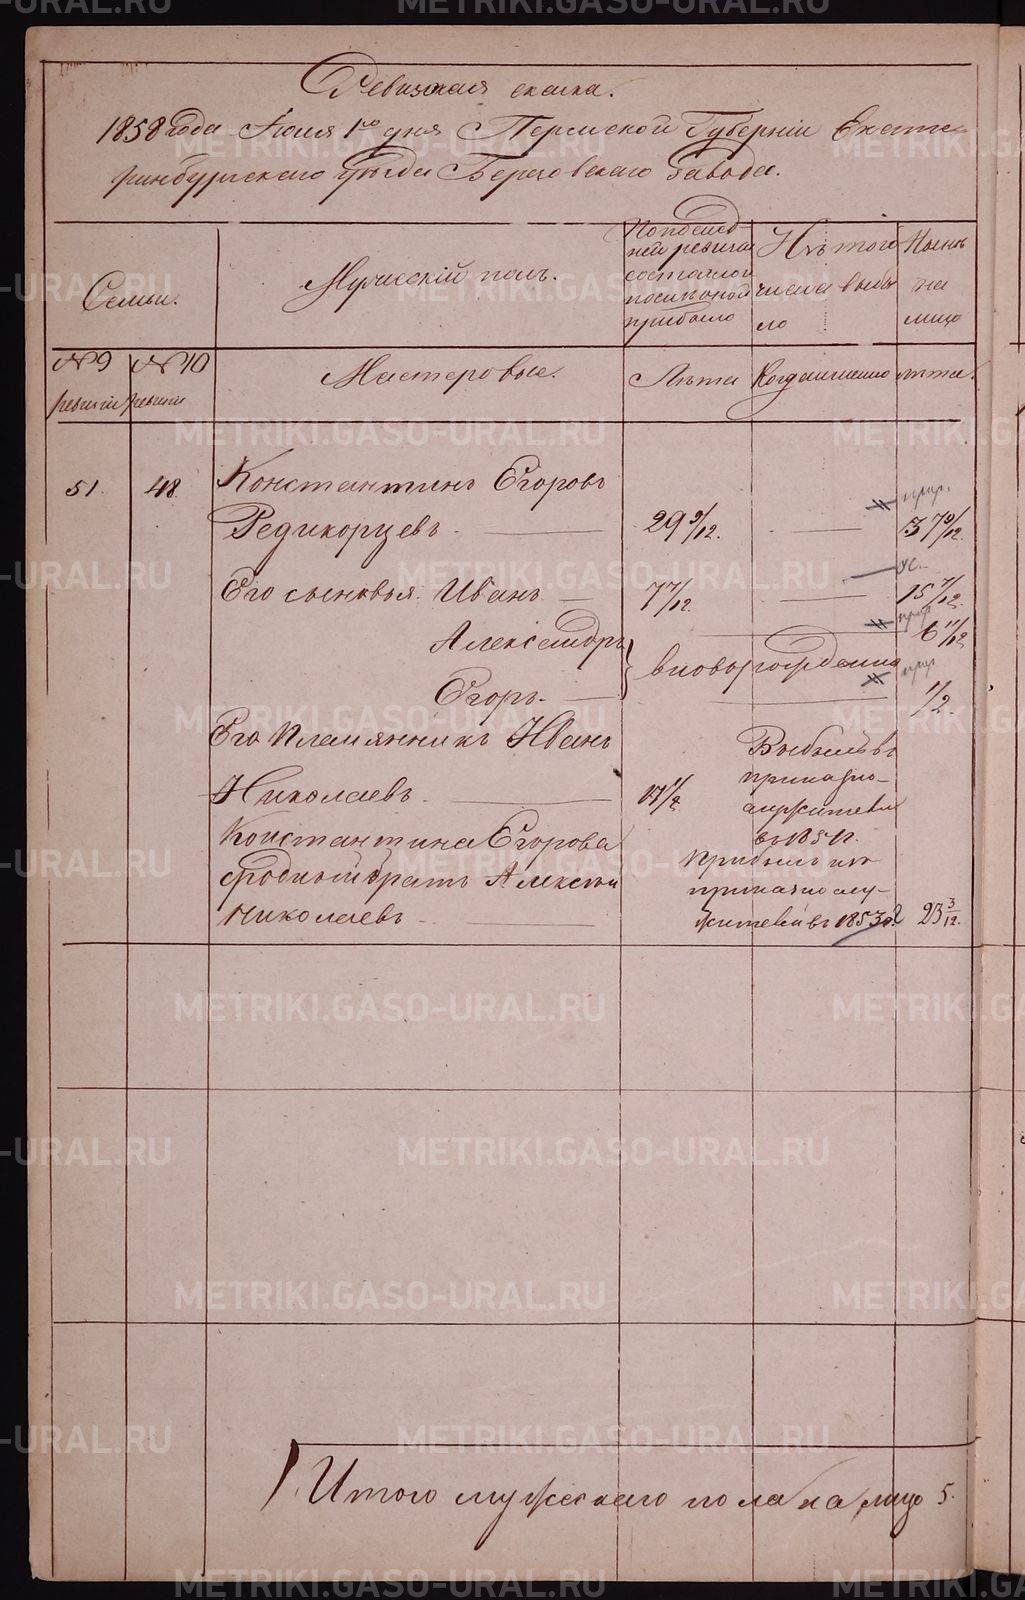 Ревизская сказка.
1858 года Июня 1го дня Пермской Губерніи Екате-
ринбургскаго уѣзда Березовскаго Завода.
Семьи.
Мужескій полъ.
По послѣд-
ней ревизіи
состояло и
после оной
прибыло
Изъ того
числа выбы
ло
Нынѣ
на
лицо
№ 9
ревизіи
№ 10
ревизіи
Мастеровые.
Лѣта
Когда именно
лѣта.
51.
48
Константинъ Егоровъ
Редикорцевъ
29 9/12.
37 9/12.
Его сыновья: Иванъ
7 7/12
15 7/12.
Александръ
6 11/12
вновь рожденные
Егоръ.
1/2.
Его Племянникъ Иванъ
Николаевъ.
Выбылъ въ
приказно-
служители
въ
Константина Егорова
сродный братъ Алексей
Николаевъ
Прибылъ изъ
приказнослу-
жителей въ 1853
23 3/12.
Итого мужескаго пола на лицо 5.
METRIKI.GASO-URAL.RU